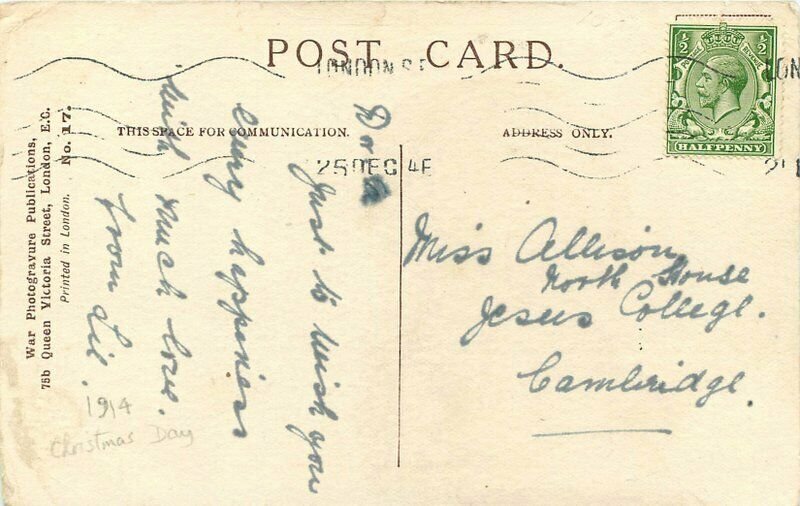 POST CARD.
LONDON S.E
LON
THIS SPACE FOR COMMUNICATION.
ADDRESS ONLY.
25 DEC 14
HALFPENNY
½ ½
War Photogravure Publications,
75b Queen Victoria Street, London, E.C.
Printed in London. No. 17.
Just to wish you
every happiness
with much love.
from Lil.
1914
Christmas Day
Miss Allison
North House
Jesus College.
Cambridge.